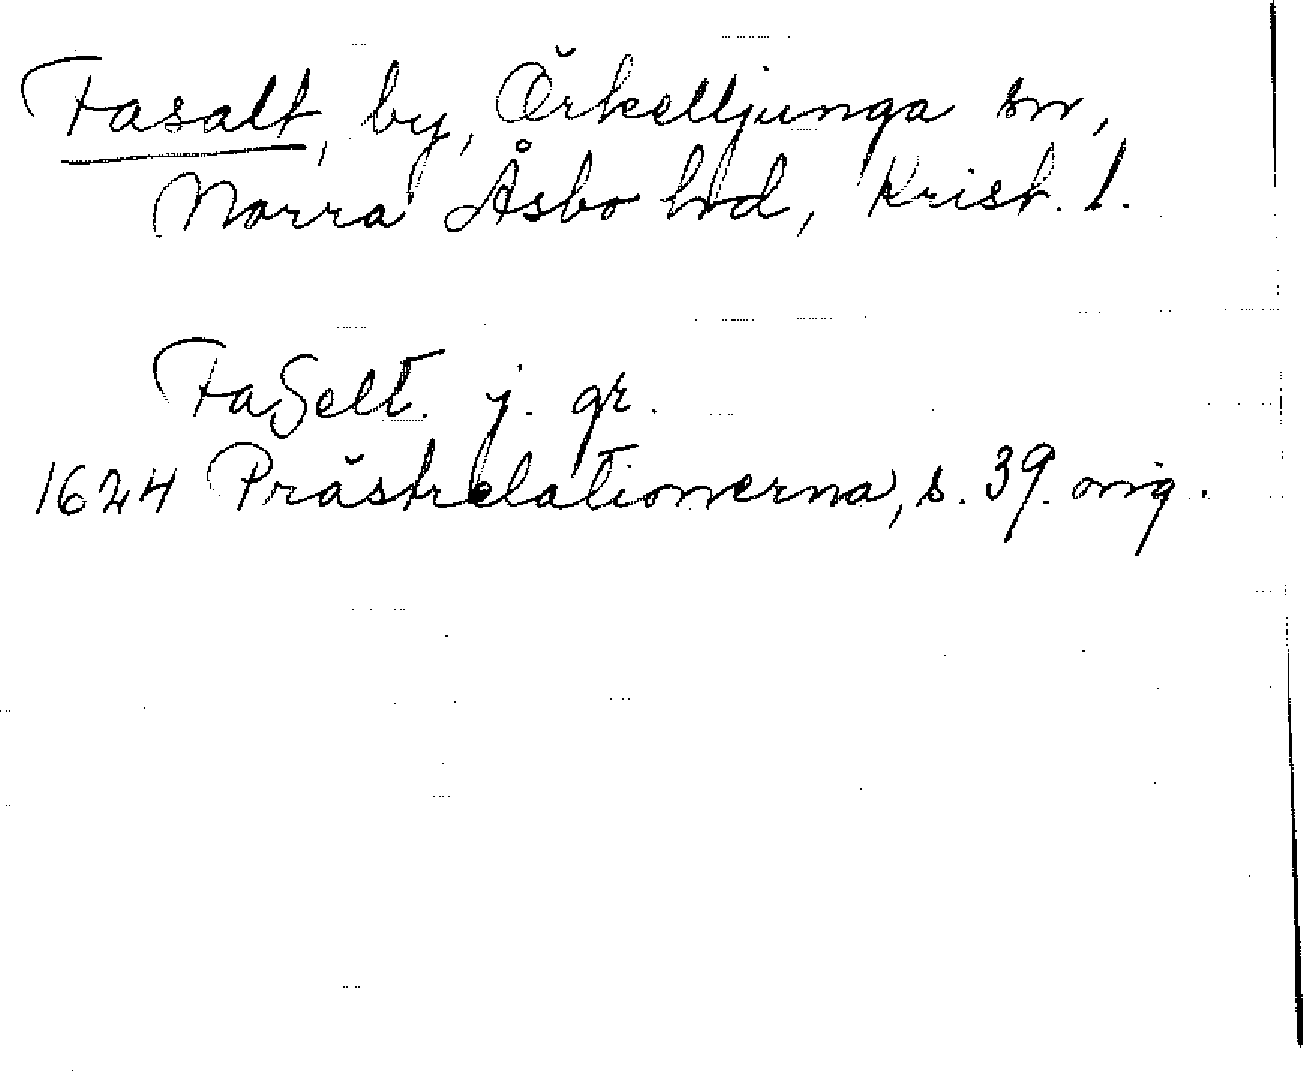 Fasalt, by, Örkelljunga sn,
Norra Åsbo hd, Krist. l.
FaSelt. j. gr.
1624 Prästrelationerna, s. 39. orig.